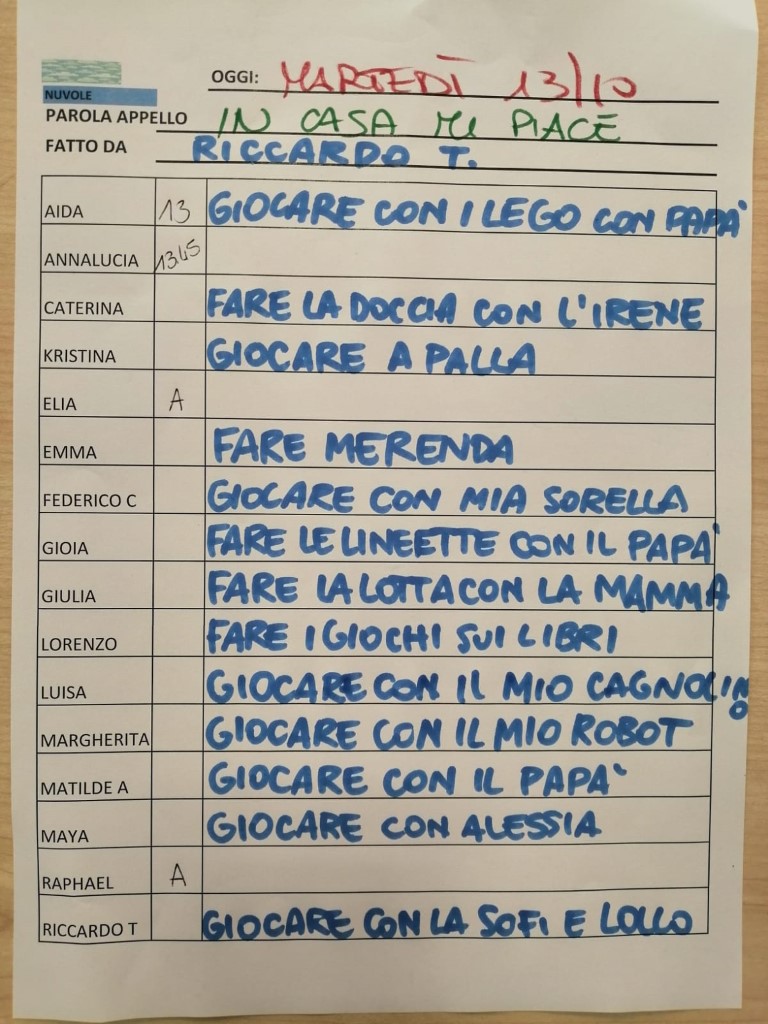 OGGI: MARTEDÌ 13/10
NUVOLE
PAROLA APPELLO IN CASA MI PIACE
FATTO DA RICCARDO T.
AIDA 13 GIOCARE CON I LEGO CON PAPA'
ANNALUCIA 13.45
CATERINA FARE LA DOCCIA CON L'IRENE
KRISTINA GIOCARE A PALLA
ELIA A
EMMA FARE MERENDA
FEDERICO C GIOCARE CON MIA SORELLA
GIOIA FARE LE LINEETTE CON IL PAPA'
GIULIA FARE LA LOTTA CON LA MAMMA
LORENZO FARE I GIOCHI SUI LIBRI
LUISA GIOCARE CON IL MIO CAGNOLINO
MARGHERITA GIOCARE CON IL MIO ROBOT
MATILDE A GIOCARE CON IL PAPA'
MAYA GIOCARE CON ALESSIA
RAPHAEL A
RICCARDO T GIOCARE CON LA SOFI E LOLLO